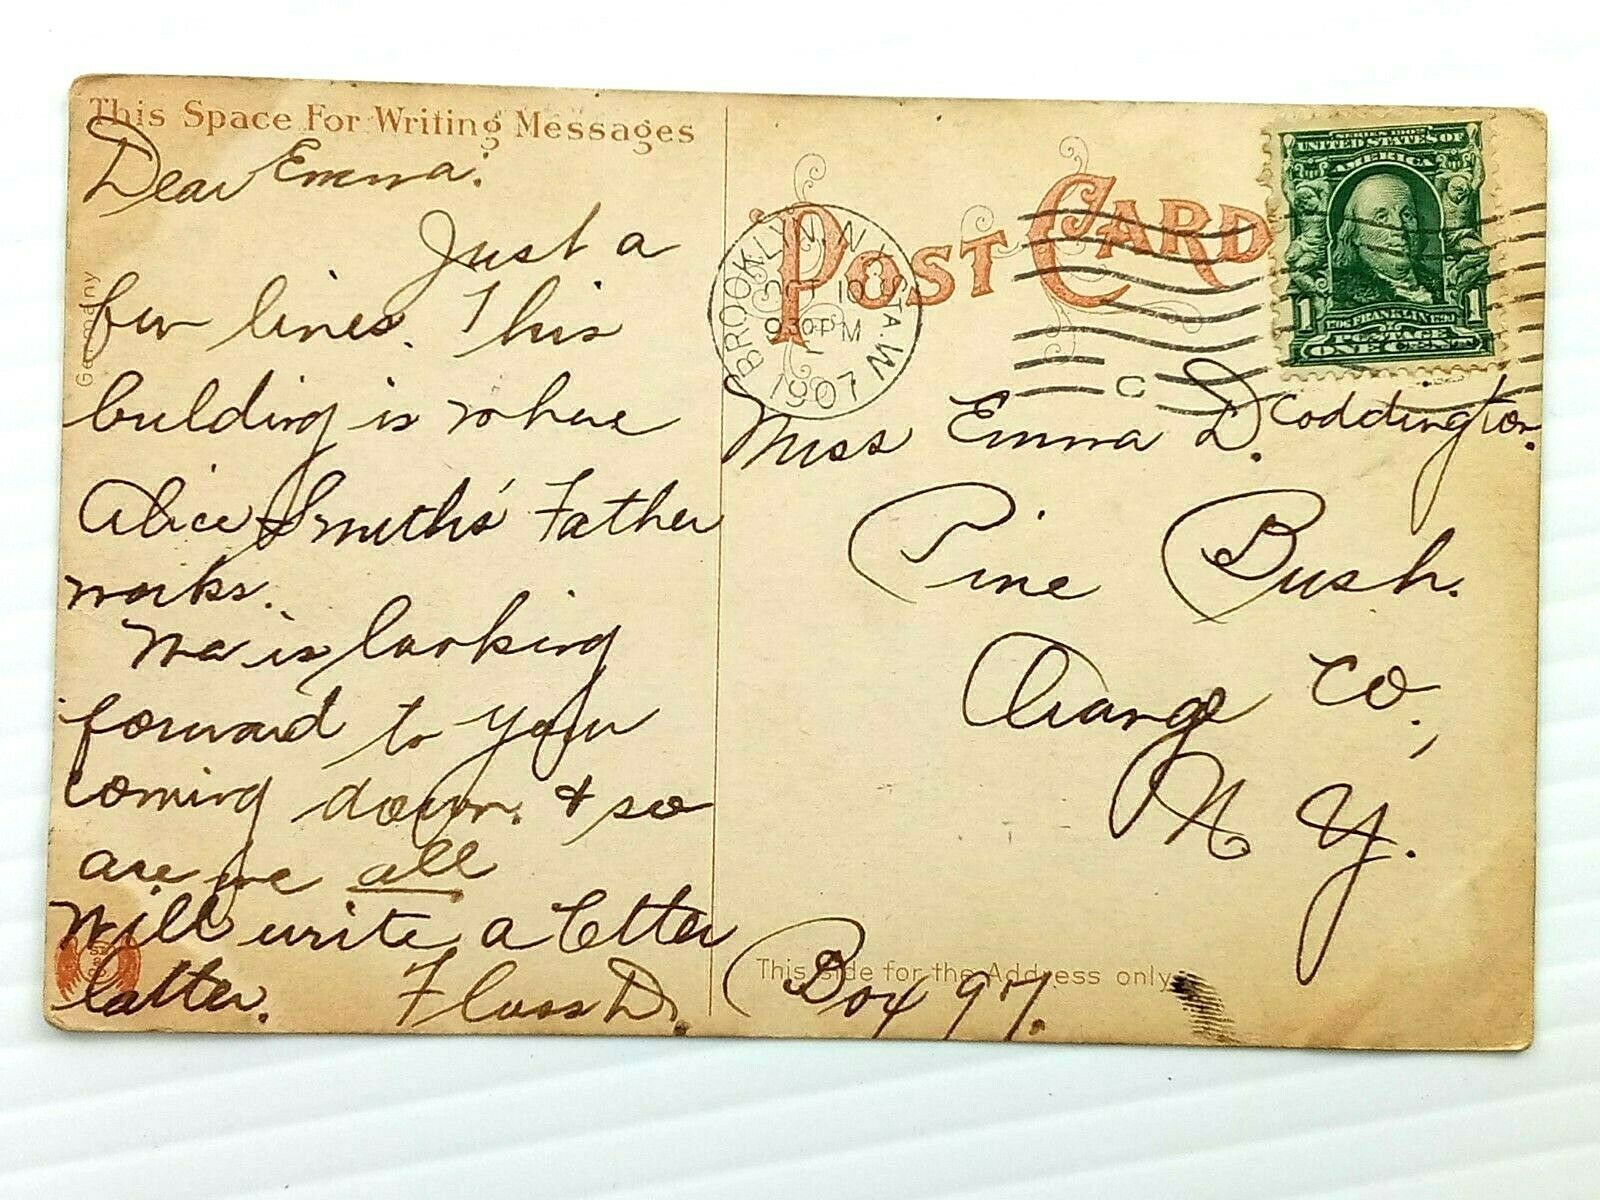 This Space For Writing Messages
Dear Emma.
Just a
few lines. This
building is where
Alice Smith's Father
works.
Ma is looking
forward to your
coming down. & so
are we all
Will write a letter
latter. Floss D.
Germany
POST CARD
BROOKLYN, N.Y. STA. W
OCT 10
930 PM
1907
C
SERIES 1902
UNITED STATES OF
AMERICA
1706 FRANKLIN 1790
POSTAGE
1 1
ONE CENT
Miss Emma D. Coddington.
Pine Bush.
Orange Co.,
N. Y.
This side for the Address only.
Box 97.